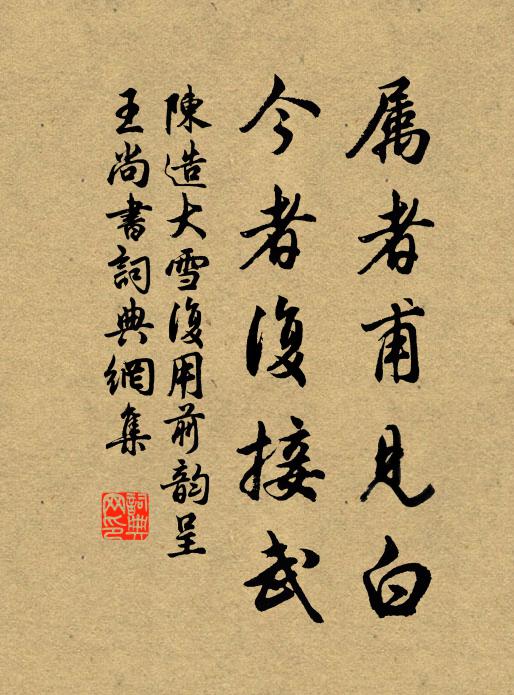 属者甫見白
今者復接武
陳造大雪復用前韵呈
王尚書詞典網集
詞典
网印